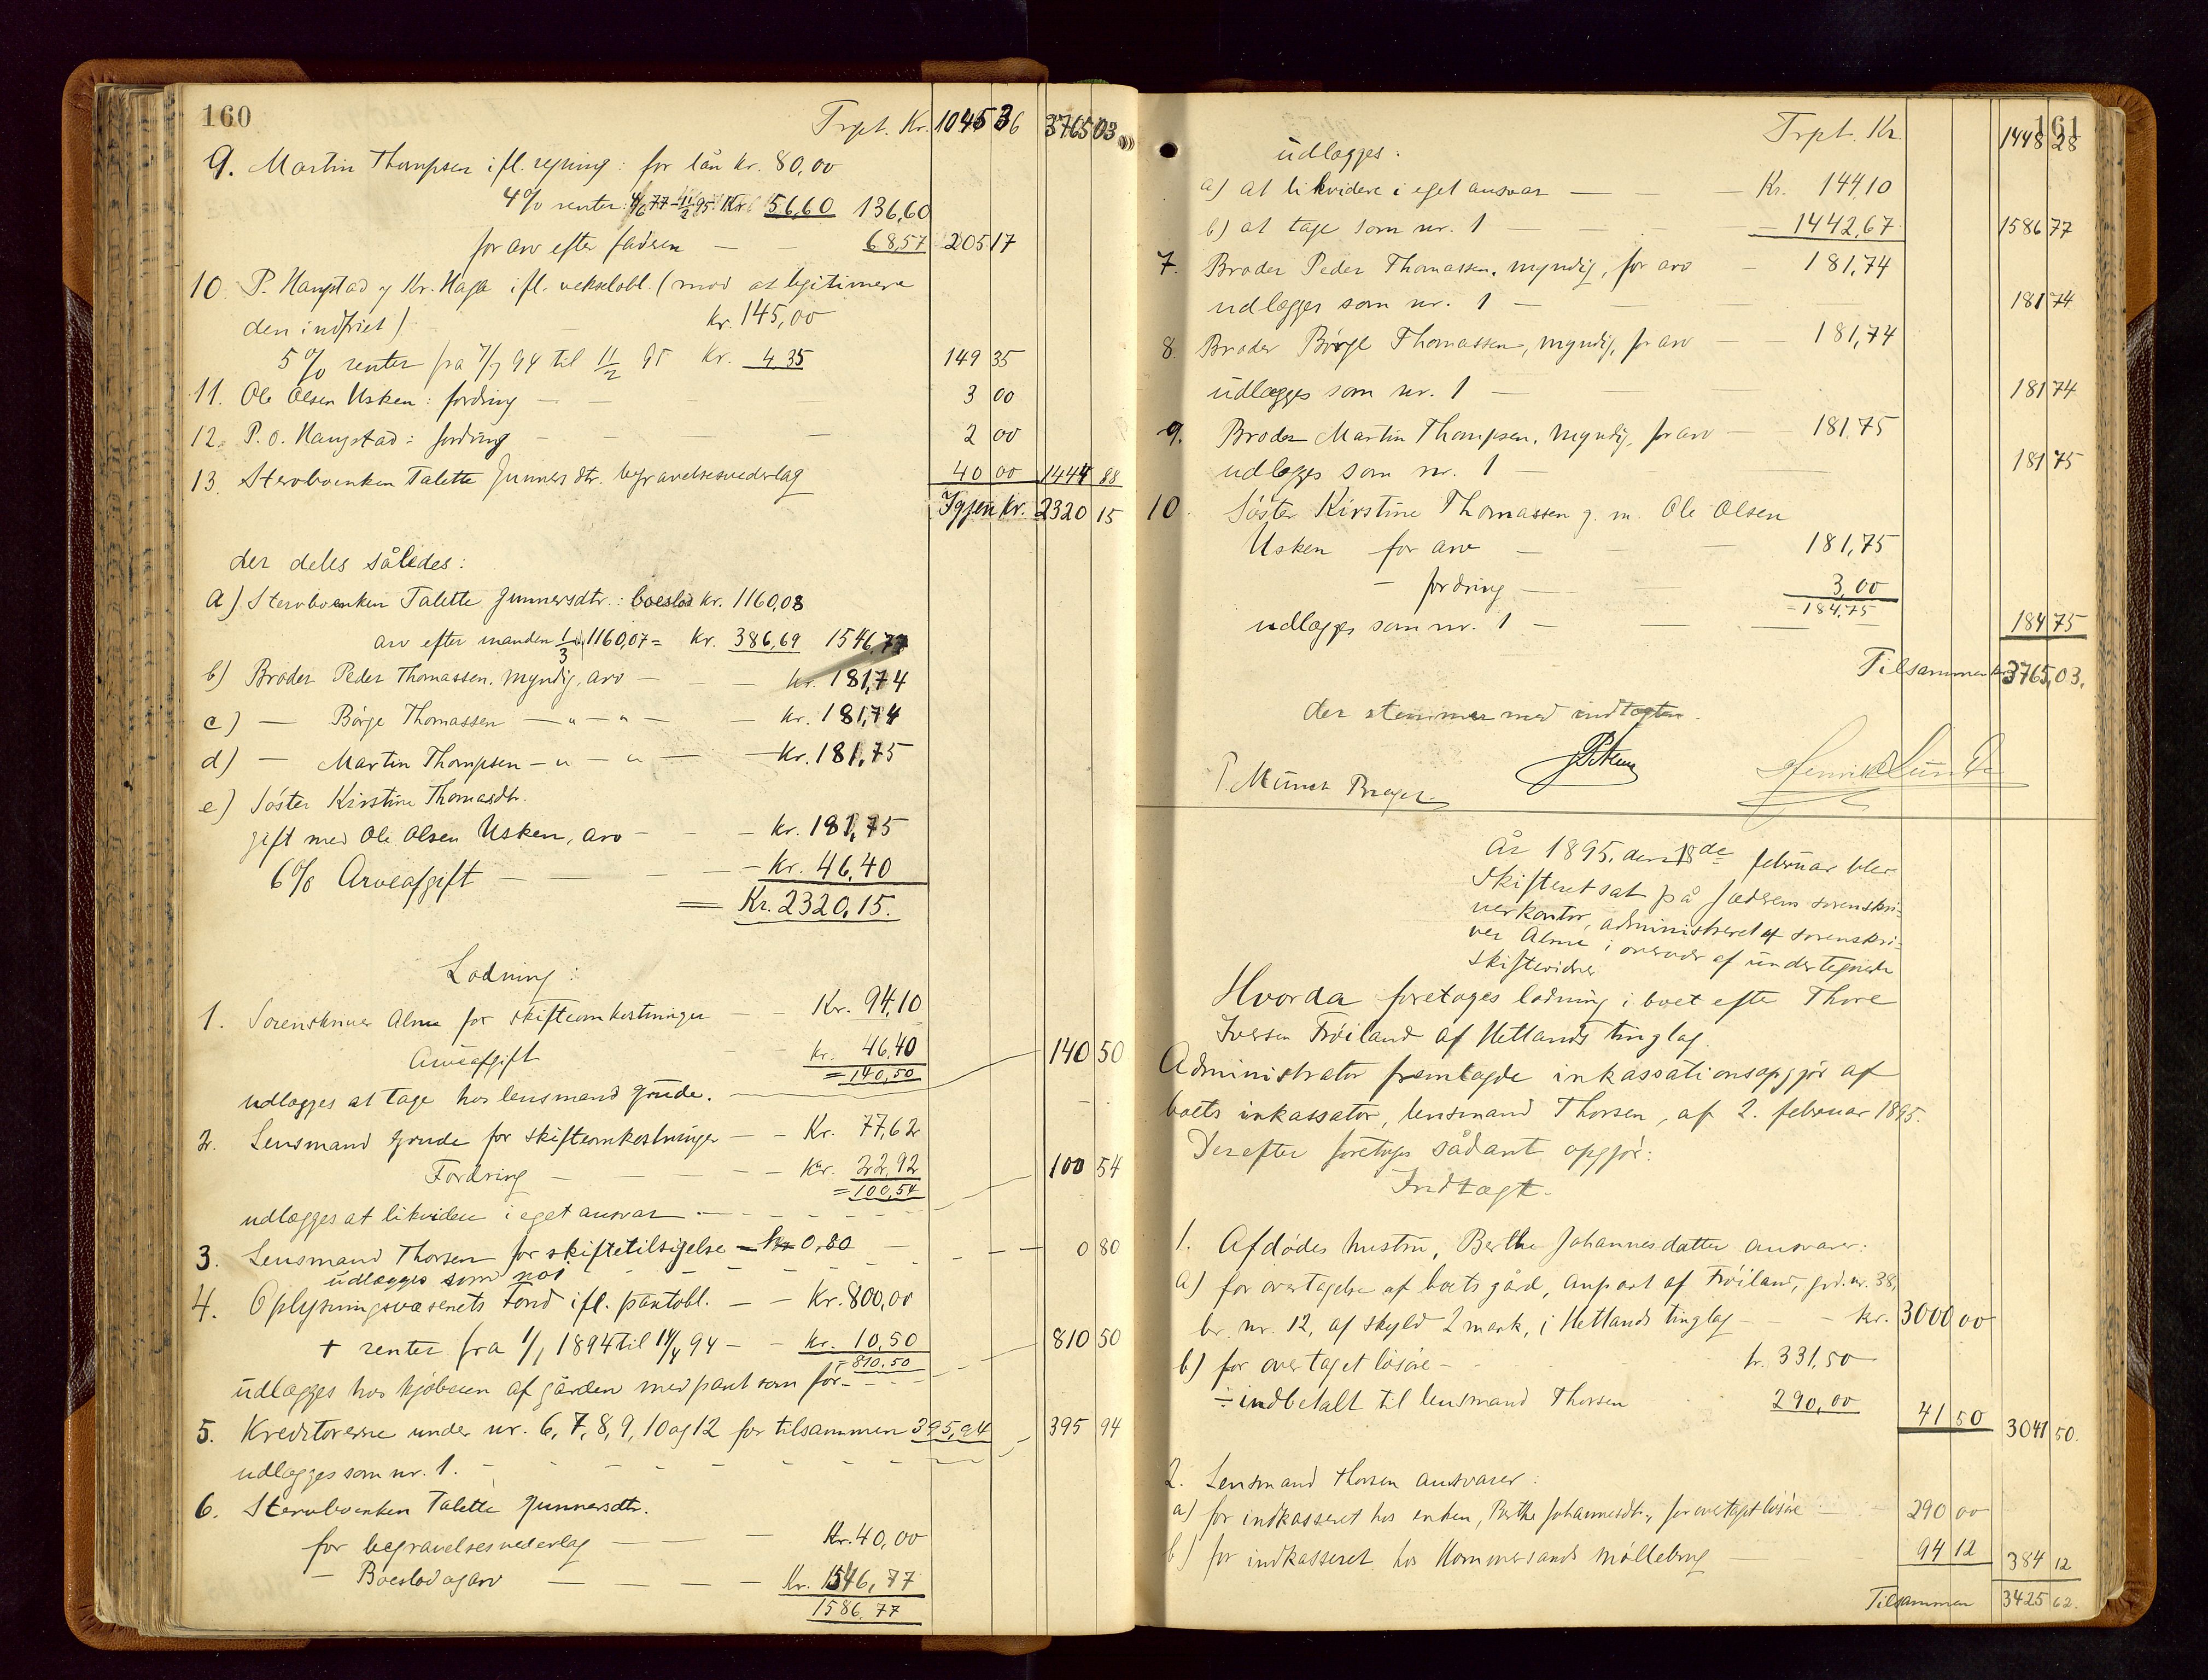 160
Trpt. Kr. 1045 36 3765 03
9. Martin Thompsen ifl. regning: for lån Kr. 80,00
4% renter: 4/6 77 - 11/2 95 Kr. 56,60 136,60
for arv efter faderen — — 68,57 205 17
10. P. Haugstad og Kr. Haga ifl. vekselobl. (mod at legitimere
den indfriet) — Kr. 145,00
5% renter fra 7/7 94 til 11/2 95 Kr. 4,35 149 35
11. Ole Olsen Usken: fordring — — 3 00
12. P. O. Haugstad: fordring — — 2 00
13. Stervboenken Talette Gunnersdtr. begravelsesvederlag 40 00 1444 88
Igjen Kr. 2320 15
der deles således:
a) Stervboenken Talette Gunnersdtr.: boeslod kr. 1160,08
arv efter manden 1/3 af 1160,07 = Kr. 386,69 1546,77
b) Broder Peder Thomassen, myndig, arv — — Kr. 181,74
c) — Börge Thomassen — " — " — Kr. 181,74
d) — Martin Thompsen — " — " — Kr. 181,75
e) Söster Kirstine Thomasdtr.
gift med Ole Olsen Usken, arv — — Kr. 181,75
6% Arveafgift — — — Kr. 46,40
= Kr. 2320,15.
Lodning:
1. Sorenskriver Alme for skifteomkostninger — Kr. 94,10
Arveafgift — Kr. 46,40 140 50
= 140,50
udlægges at tage hos lensmand Grude.
2. Lensmand Grude for skifteomkostninger — Kr. 77,62
Fordring — — Kr. 22,92 100 54
= 100,54
udlægges at likvidere i eget ansvar —
3. Lensmand Thorsen for skiftetilsigelse — Kr 0,80 — 0 80
udlægges som no 1
4. Oplysningsvæsenets Fond ifl. pantobl. — Kr. 800,00
+ renter fra 1/1 1894 til 14/4 94 — Kr. 10,50 810 50
= 810,50
udlægges hos kjöberen af gården med pant som för.
5. Kreditorerne under nr. 6, 7, 8, 9, 10 og 12 for tilsammen 395,94 395 94
udlægges som nr. 1.
6. Stervboenken Talette Gunnersdtr.
for begravelsesvederlag — — Kr. 40,00
— Boeslod og arv — — Kr. 1546,77
1586,77
161
Trpt. Kr. 1448 28
udlægges:
a) at likvidere i eget ansvar — Kr. 144,10
b) at tage som nr. 1 — — 1442,67 1586 77
7. Broder Peder Thomassen, myndig, for arv — 181,74
udlægges som nr. 1 — 181 74
8. Broder Börge Thomassen, myndig, for arv — 181,74
udlægges som nr. 1 — 181 74
9. Broder Martin Thompsen, myndig, for arv — 181,75
udlægges som nr. 1 — 181 75
10. Söster Kirstine Thomassen g. m. Ole Olsen
Usken for arv — 181,75
— fordring — 3,00
= 184,75
udlægges som nr. 1 — 184 75
Tilsammen kr 3765,03.
der stemmer med indtægten.
P. Münch Præger.
År 1895, den 18de februar blev
skifteret sat på Jæderens sorenskri-
verkontor, administreret af sorenskri-
ver Alme i overvær af undertegnede
skiftevidner
Hvorda foretoges lodning i boet efter Thore
Iversen Fröiland af Hetlands tinglag.
Administrator fremlagde inkassationsopgjör af
boets inkassator, lensmand Thorsen, af 2. februar 1895.
Derefter foretoges sådant opgjör:
Indtægt.
1. Afdödes hustru, Berthe Johannesdatter ansvarer:
a) for overtagelse af boets gård, anpart af Fröiland, grd. nr. 38,
br. nr. 12, af skyld 2 mark, i Hetlands tinglag — — Kr. 3000 00
b) for overtaget lösöre — kr. 331,50
÷ indbetalt til lensmand Thorsen 290,00 41 50 3041 50.
2. Lensmand Thorsen ansvarer:
a) for indkasseret hos enken, Berthe Johannesdtr., for overtaget lösöre 290 00
b) for indkasseret hos Hommersands möllebrug 94 12 384 12
Tilsammen 3425 62.